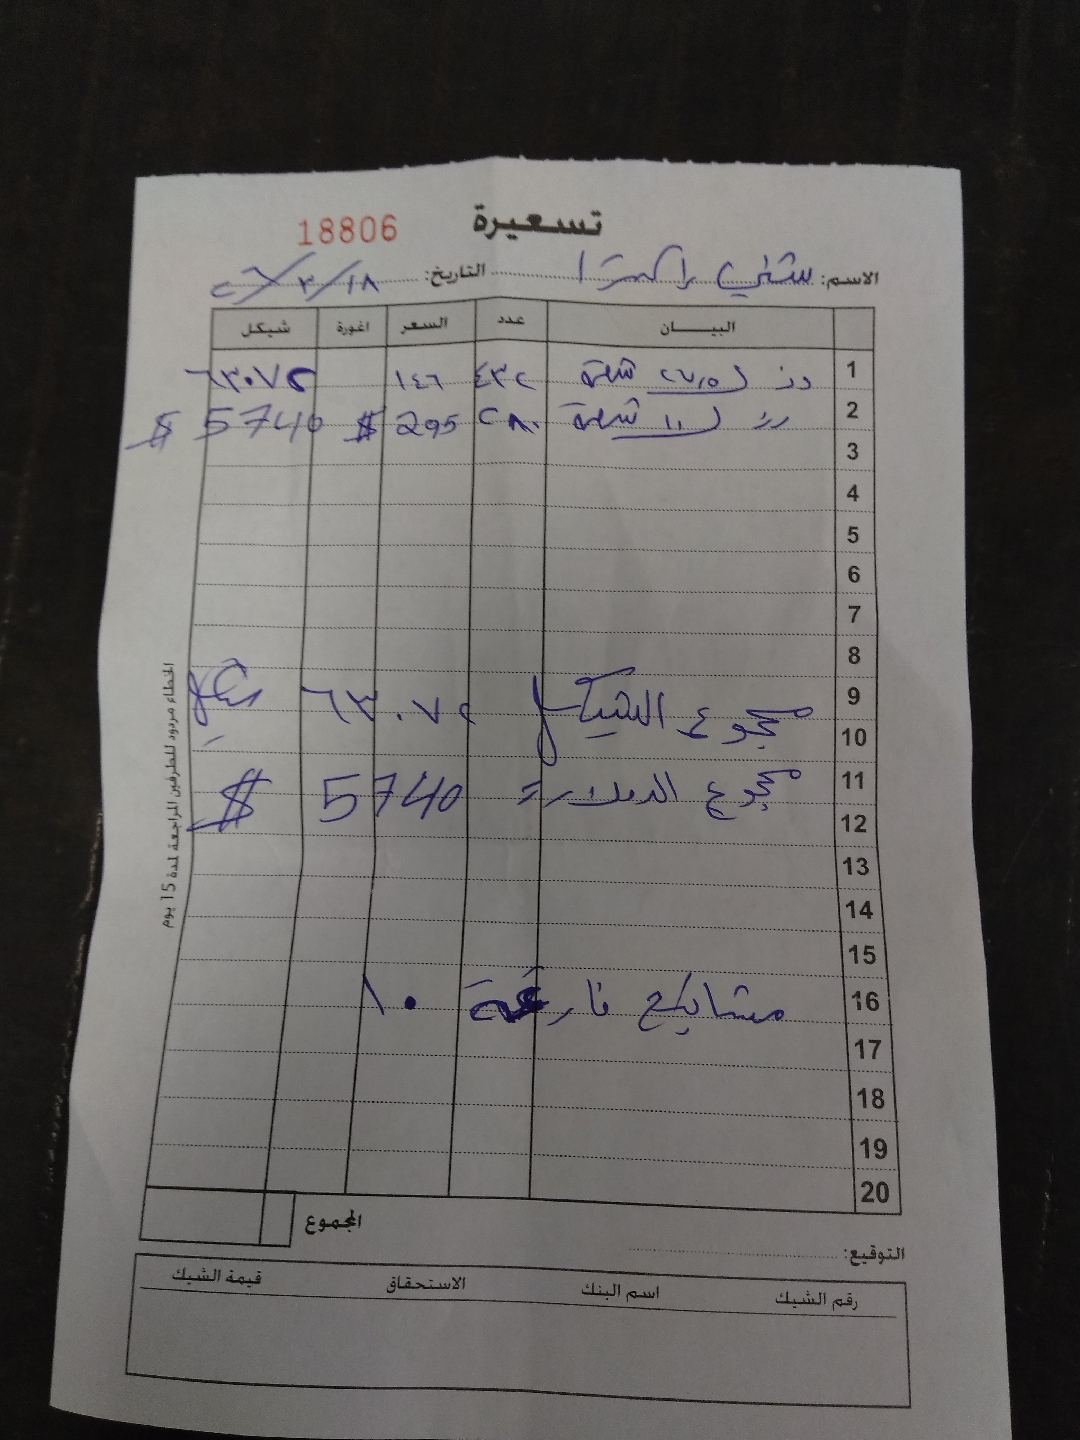 تسعيرة
18806
الاسم: التاريخ: ١٨/٣/
البيـــان عدد السعر اغورة شيكل
1 ٤٣٢ ١٤٦ ٦٣٠٧٢
2 ل ١١ ٢٨٠ 295 $ 5740 $
3
4
5
6
7
8
9
مجموع الشيكل ٦٣٠٧٢ شيكل
10
11
مجموع الدولار = 5740 $
12
13
14
15
16 مشاطيح فارغة ١٠
17
18
19
20
المجموع
التوقيع:
رقم الشيك اسم البنك الاستحقاق قيمة الشيك
الخطاء مردود للطرفين المراجعة لمدة 15 يوم